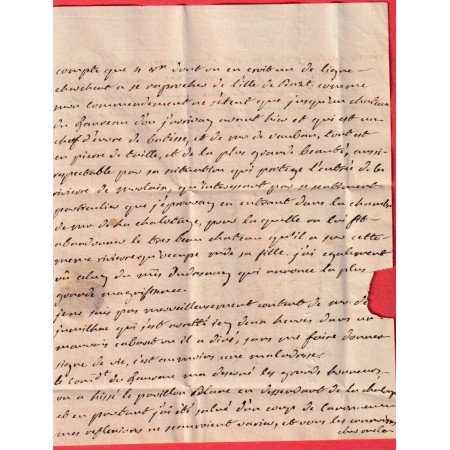 compte que 4 vx dont on en écrit un de ligne
cherchant a se raprocher de l'ille de Batz. comme
mon commandement ne s'étent que jusqu'au chateau
du Taureau d'ou j'arrivay avant hier et qui est un
chef d'euvre de batisse, et de mr de vauban, tout est
en pierre de taille, et de la plus grande beauté, aussi
respectable par sa situation qui protege l'entrée de la
riviere de morlaix, qu'interessant par le sentiment
particulier que j'eprouvay en entrant dans la chambre
de mr de la chalotais, pour la quelle on lui fit
abandonner le tres beau chateau qu'il a sur cette
meme riviere qu'occupe mde sa fille. j'ai egalement
vû celuy du mis Dudresnay qui annonce la plus
grande magnifisance.
je ne suis pas merveilleusement content de mr de
jumilhac qui s'est aresté icy deux heures dans un
mauvais cabaret ou il a diné, sans me faire donner
signe de vie, c'est au moins une maladresse.
le comdt du Taureau m'a decerné les grands honneurs,
on a hissé le pavillon Blanc en descendant de la chaloupe
et en partant j'ai été salué d'un coup de canon
mes reflexions ne sauroient varier, et vous les connoissez